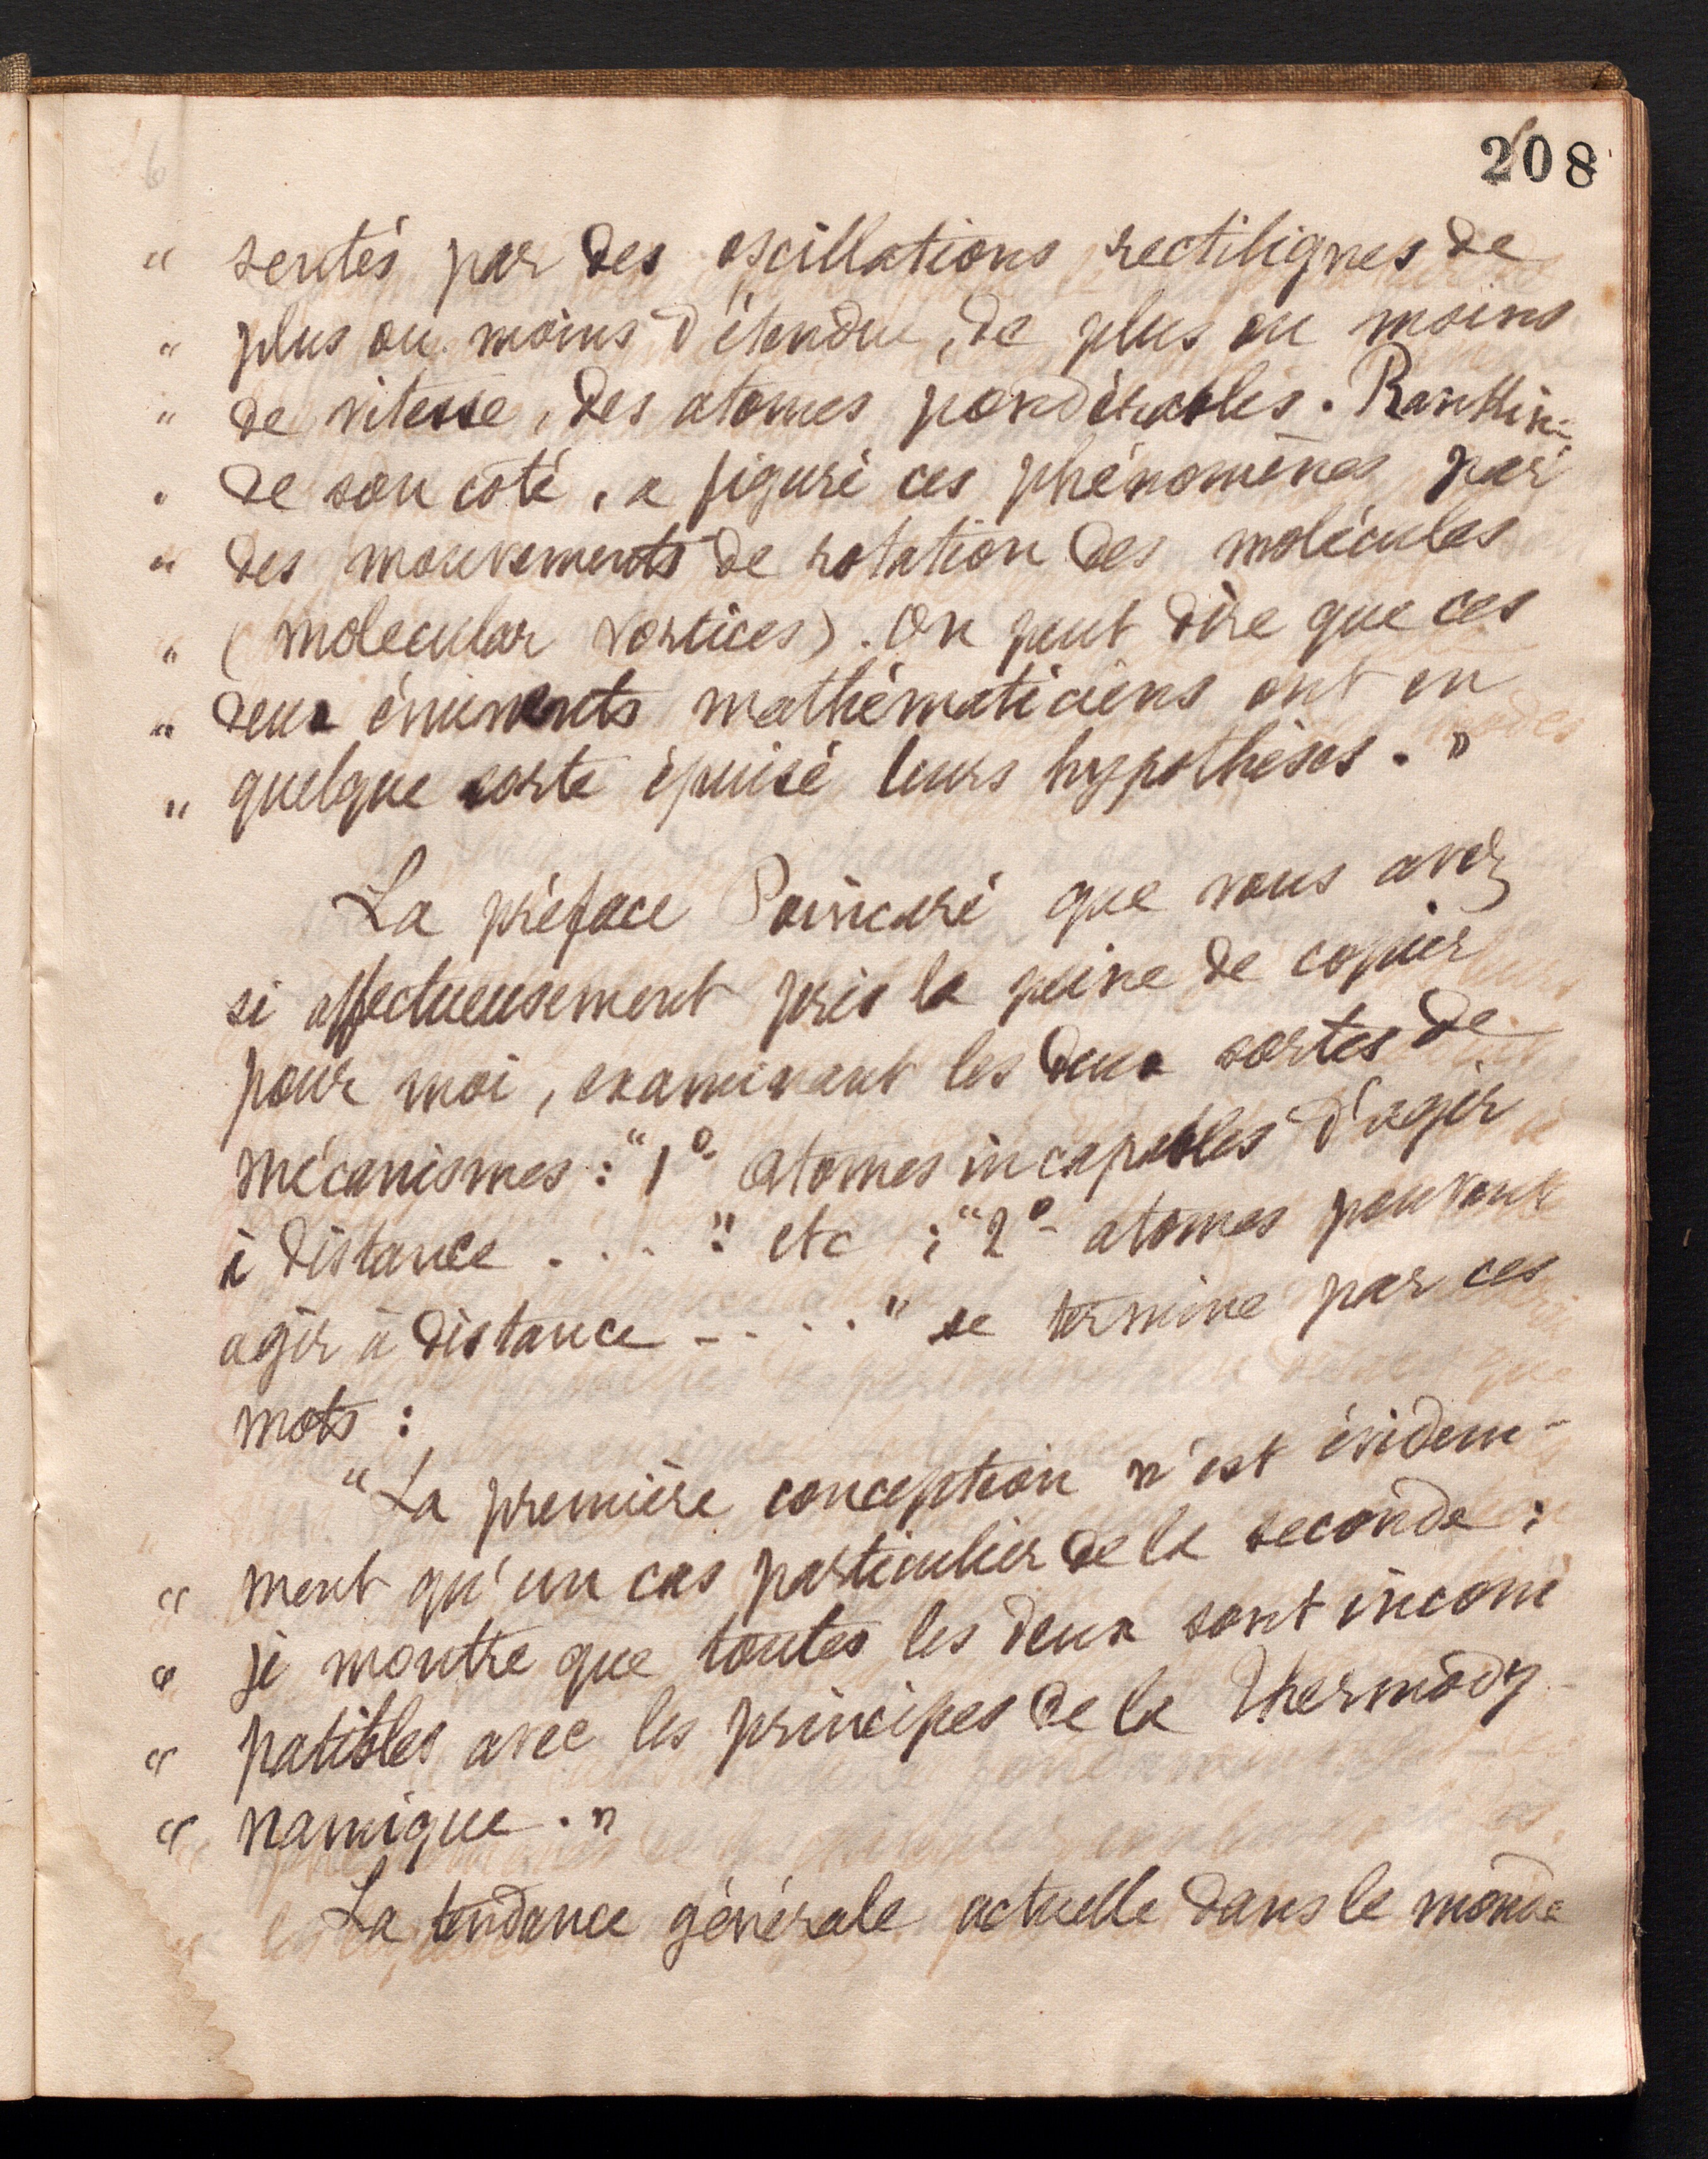 208
" sentés par des oscillations rectilignes de
" plus ou moins d'étendue, de plus ou moins
" de vitesse, des atomes pondérables. Rankine,
" de son côté, a figuré ces phénomènes par
" des mouvements de rotation des molécules
" (molecular vortices). On peut dire que ces
" deux éminents mathématiciens ont en
" quelque sorte épuisé leurs hypothèses. "
La préface Poincaré que vous avez
si affectueusement pris la peine de copier
pour moi, examinant les deux sortes de
mécanismes : "1º atomes incapables d'agir
à distance . . . " etc ; "2º- atomes pouvant
agir à distance - . . . ." se termine par ces
mots :
"La première conception n'est évidem-
" ment qu'un cas particulier de la seconde :
" je montre que toutes les deux sont incom
" patibles avec les principes de la Thermody-
" namique . "
La tendance générale actuelle dans le monde